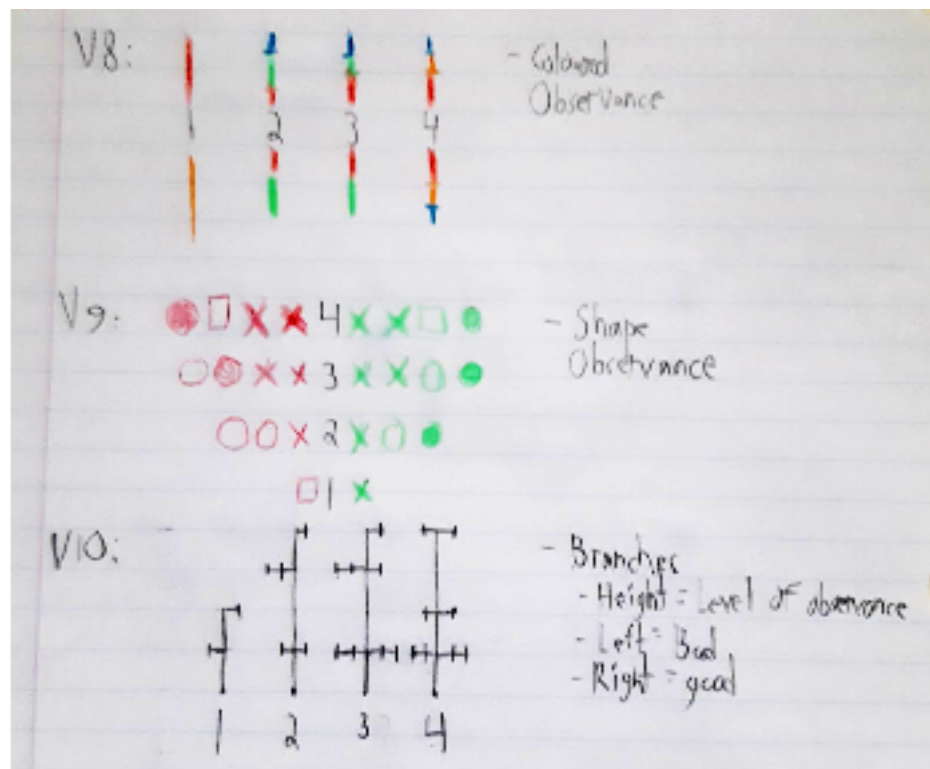 V8: 1 2 3 4 - Coloured
Observance
V9: 4 - Shape
3 Obsretvance
2
1
V10:
- Branches
- Height = Level of observance
- Left = Bad
- Right = good
1 2 3 4